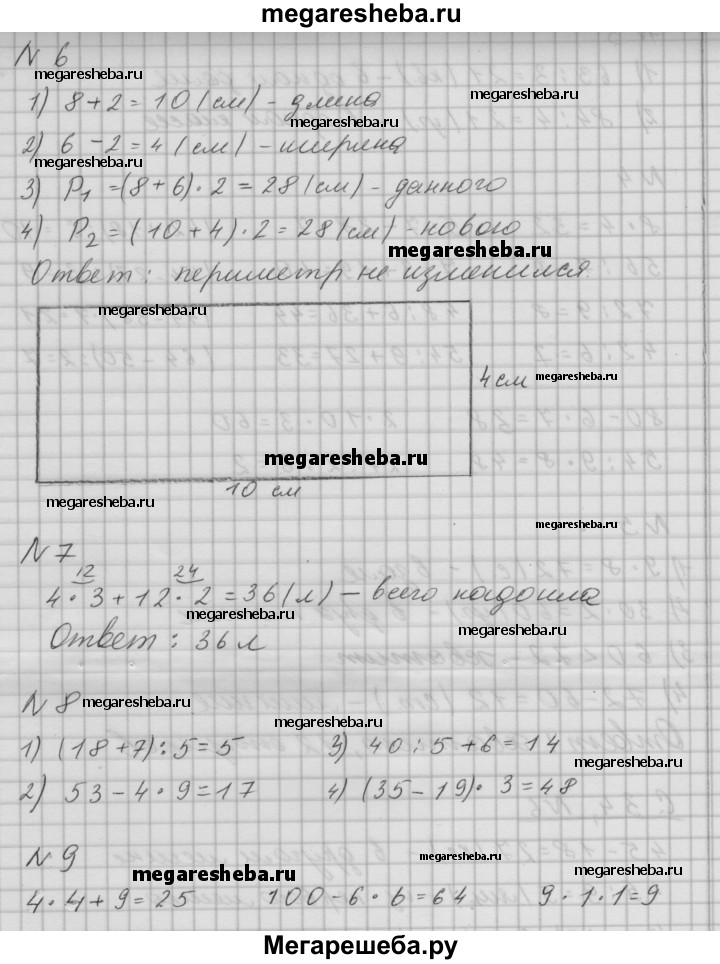 megaresheba.ru
N 6
megaresheba.ru
1) 8+2=10 (см) - длина
megaresheba.ru
megaresheba.ru
2) 6-2=4 (см) - ширина
megaresheba.ru
3) P1 =(8+6)·2=28(см) - данного
4) P2=(10+4)·2=28(см) - нового
megaresheba.ru
Ответ: периметр не изменился
megaresheba.ru
4 см megaresheba.ru
megaresheba.ru
10 см
megaresheba.ru
megaresheba.ru
N 7
12 24
4·3+12·2=36(л) - всего надоила
megaresheba.ru
megaresheba.ru
Ответ: 36 л
N 8 megaresheba.ru
megaresheba.ru
1) (18+7):5=5 3) 40:5+6=14
megaresheba.ru
2) 53-4·9=17 4) (35-19)·3=48
megaresheba.ru
N 9
megaresheba.ru megaresheba.ru megaresheba.ru
4·4+9=25 100-6·6=64 9·1·1=9
Мегарешеба.ру